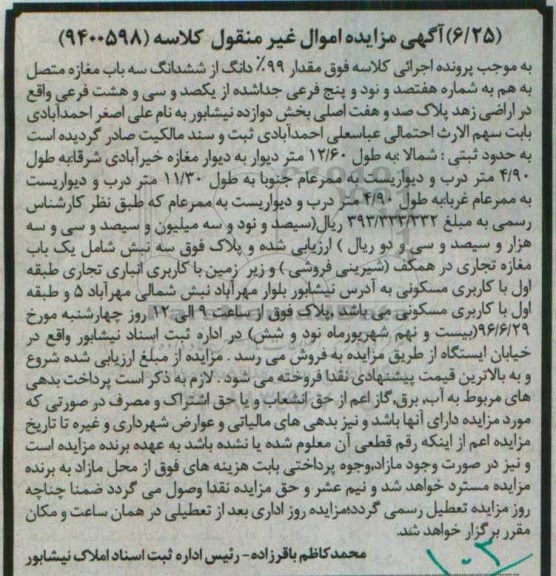 (۶/۲۵) آگهی مزایده اموال غیر منقول کلاسه (۹۴۰۰۵۹۸)
به موجب پرونده اجرائی کلاسه فوق مقدار ۹۹٪ دانگ از ششدانگ سه باب مغازه متصل
به هم به شماره هفتصد و نود و پنج فرعی جداشده از یکصد و سی و هشت فرعی واقع
در اراضی زهد پلاک صد و هفت اصلی بخش دوازده نیشابور به نام علی اصغر احمدآبادی
بابت سهم الارث احتمالی عباسعلی احمدآبادی ثبت و سند مالکیت صادر گردیده است
به حدود ثبتی : شمالا :به طول ۱۲/۶۰ متر دیوار به دیوار مغازه خیرآبادی شرقا:به طول
۴/۹۰ متر درب و دیواریست به ممرعام جنوبا به طول ۱۱/۳۰ متر درب و دیواریست
به ممرعام غربا:به طول ۴/۹۰ متر درب و دیواریست به ممرعام که طبق نظر کارشناس
رسمی به مبلغ ۳۹۳/۳۳۳/۳۳۲ ریال(سیصد و نود و سه میلیون و سیصد و سی و سه
هزار و سیصد و سی و دو ریال ) ارزیابی شده و پلاک فوق سه نبش شامل یک باب
مغازه تجاری در همکف (شیرینی فروشی ) و زیر زمین با کاربری انباری تجاری طبقه
اول با کاربری مسکونی به آدرس نیشابور بلوار مهرآباد نبش شمالی مهرآباد ۵ و طبقه
اول با کاربری مسکونی می باشد ،پلاک فوق از ساعت ۹ الی ۱۲ روز چهارشنبه مورخ
۹۶/۶/۲۹(بیست و نهم شهریورماه نود و شش) در اداره ثبت اسناد نیشابور واقع در
خیابان ایستگاه از طریق مزایده به فروش می رسد . مزایده از مبلغ ارزیابی شده شروع
و به بالاترین قیمت پیشنهادی نقدا فروخته می شود . لازم به ذکر است پرداخت بدهی
های مربوط به آب، برق،گاز اعم از حق انشعاب و یا حق اشتراک و مصرف در صورتی که
مورد مزایده دارای آنها باشد و نیز بدهی های مالیاتی و عوارض شهرداری و غیره تا تاریخ
مزایده اعم از اینکه رقم قطعی آن معلوم شده یا نشده باشد به عهده برنده مزایده است
و نیز در صورت وجود مازاد،وجوه پرداختی بابت هزینه های فوق از محل مازاد به برنده
مزایده مسترد خواهد شد و نیم عشر و حق مزایده نقدا وصول می گردد ضمنا چناچه
روز مزایده تعطیل رسمی گردد؛مزایده روز اداری بعد از تعطیلی در همان ساعت و مکان
مقرر برگزار خواهد شد.
محمدکاظم باقرزاده - رئیس اداره ثبت اسناد املاک نیشابور